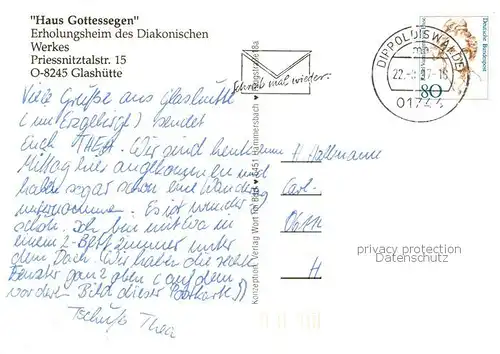 "Haus Gottessegen"
Erholungsheim des Diakonischen
Werkes
Priessnitztalstr. 15
O-8245 Glashütte
Schreib mal wieder.
DIPPOLDISWALDE
01744
Deutsche Bundespost
80
Viele Grüße aus Glashütte
(im Erzgebirge) sendet
Euch THEA. Wir sind heute
Mittag hier angekommen und
haben sogar schon eine Wanderung
unternommen. Es ist wunder
schön. Ich bin mit in
einem 2-Bettzimmer unter
dem Dach. Wir haben die
Fenster ganz oben (auf dem
vorderen Bild dieser Postkarte))
Tschüß Thea
Konzeption: Verlag Wort Bild
Carl-
H
privacy protection
Datenschutz